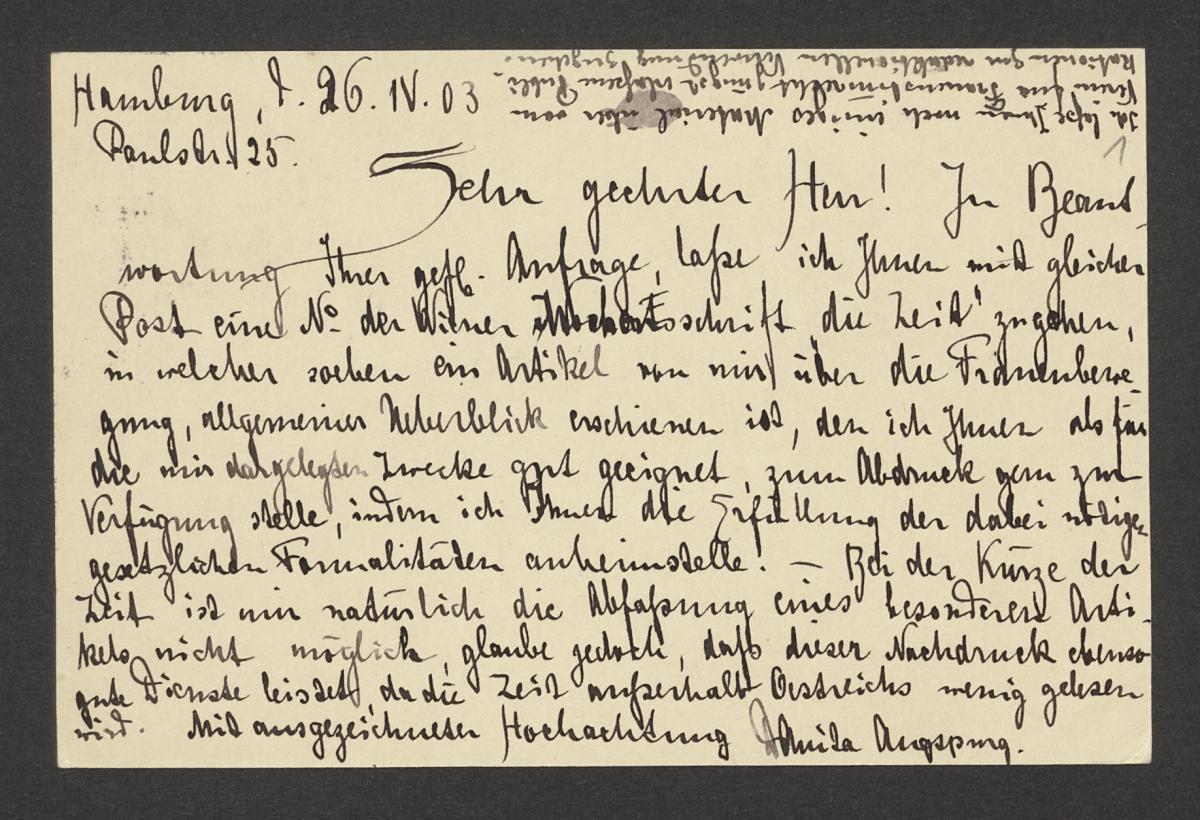 Hamburg, d. 26. IV. 03
Paulstr. 25.
Sehr geehrter Herr! In Beant
wortung Ihrer gefl. Anfrage, laße ich Ihnen mit gleicher
Post eine No der Wiener Wochensschrift „die Zeit" zugehen,
in welcher soeben ein Artikel von mir über die Frauenbewe-
gung, allgemeiner Ueberblick erschienen ist, den ich Ihnen als für
die mir dargelegten Zwecke gut geeignet, zum Abdruck gern zur
Verfügung stelle, indem ich Ihnen die Erfüllung der dabei nötigen
gesetzlichen Formalitäten anheimstelle. – Bei der Kürze der
Zeit ist mir natürlich die Abfaßung eines besonderen Arti-
kels nicht möglich, glaube jedoch, daß dieser Nachdruck ebenso
gute Dienste leistet, da die Zeit außerhalb Oestreichs wenig gelesen
wird. Mit ausgezeichneter Hochachtung Anita Augspurg.
Ich laße Ihnen noch einiges Material über vom
Verein für Frauenstimmrecht jüngst erlaßene Publi-
kationen zur redaktionellen zugehen.
1